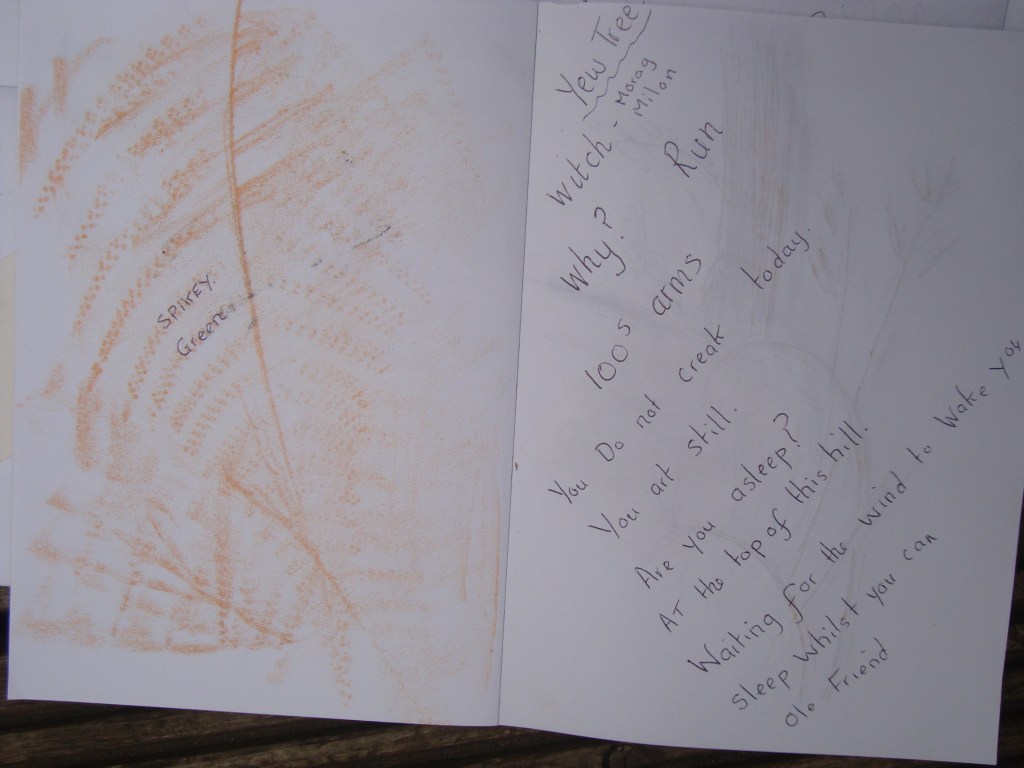 SPIKEY.
Green
Yew Tree
Witch - Morag
Milon
Why? Run
100s arms
You Do not creak today.
You art still.
Are you asleep?
At the top of this hill.
Waiting for the wind to wake you
sleep whilst you can
Ole Friend